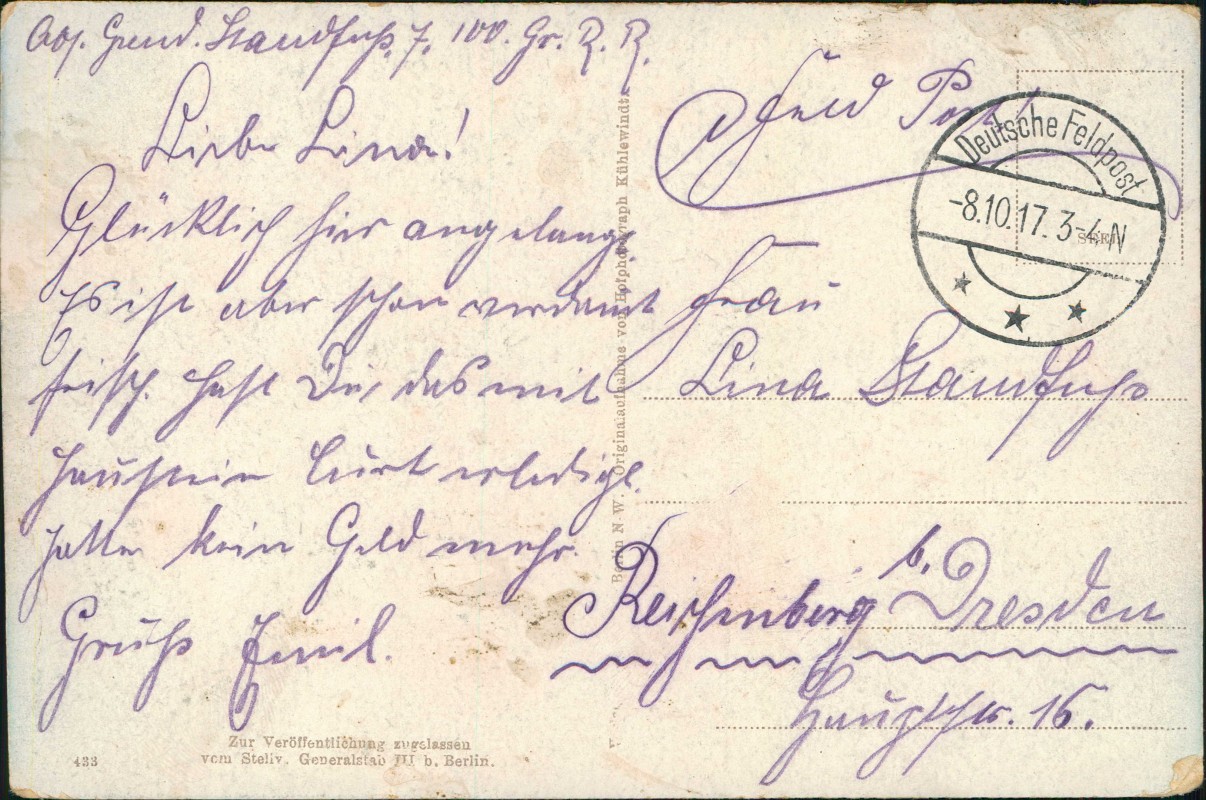 Abs. Grend. Standfuß, 7. 100. Gr. R. R.
Liebe Lina!
Glücklich hier angelangt.
Es ist aber schon verdamt
frisch. Hast Du, das mit
Haustein Curt erledigt.
Hatte kein Geld mehr.
Gruß Emil.
Zur Veröffentlichung zugelassen
vom Stellv. Generalstab III b. Berlin.
433
Berlin N.W. Originalaufnahme von Hofphotograph Kühlewindt
Feld Post
Deutsche Feldpost
-8.10.17. 3-4 N
Frau
Lina Standfuß
Reichenberg b. Dresden
Hauptstr. 16.